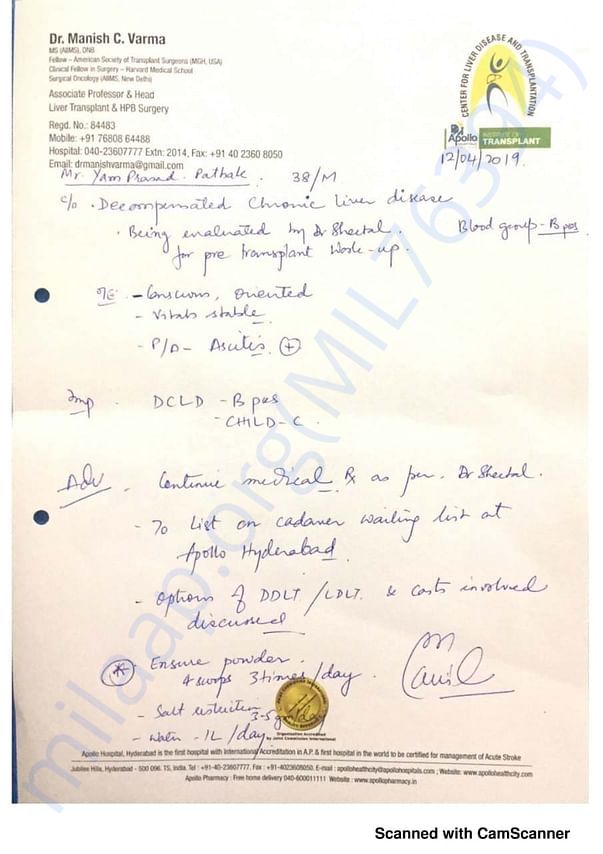 Dr. Manish C. Varma
MS (AIIMS), DNB
Fellow – American Society of Transplant Surgeons (MGH, USA)
Clinical Fellow in Surgery – Harvard Medical School
Surgical Oncology (AIIMS, New Delhi)
Associate Professor & Head
Liver Transplant & HPB Surgery
Regd. No.: 84483
Mobile: +91 76808 64488
Hospital: 040-23607777 Extn: 2014, Fax: +91 40 2360 8050
Email: drmanishvarma@gmail.com
CENTER FOR LIVER DISEASE AND TRANSPLANTATION
Apollo HOSPITALS
INSTITUTE OF
TRANSPLANT
12/04/2019.
Mr. Yam Prasad Pathak. 38/M
c/o . Decompensated Chronic liver disease
. Being evaluated by Dr Sheetal.
for pre transplant work-up.
Blood group - B pos
O/E - Conscious, oriented
- Vitals stable
- P/A - Ascitis. +
Imp. DCLD - B pos
- CHILD - C.
Adv. Continue medical Rx as per. Dr Sheetal.
- To List on cadaver waiting list at
Apollo Hyderabad.
- Options of DDLT/LDLT. & costs involved
discussed
* Ensure powder.
4 scoops 3 times/day.
- Salt restriction 3-5 gm/day
- Water - 1L/day
Organization Accredited
by Joint Commission International
Apollo Hospital, Hyderabad is the first hospital with International Accreditation in A.P. & first hospital in the world to be certified for management of Acute Stroke
Jubilee Hills, Hyderabad - 500 096. TS, India. Tel : +91-40-23607777. Fax : +91-4023608050. E-mail : apollohealthcity@apollohospitals.com ; Website: www.apollohealthcity.com
Apollo Pharmacy : Free home delivery 040-600011111 Website : www.apollopharmacy.in
milaap.org(MIL763394)
Scanned with CamScanner